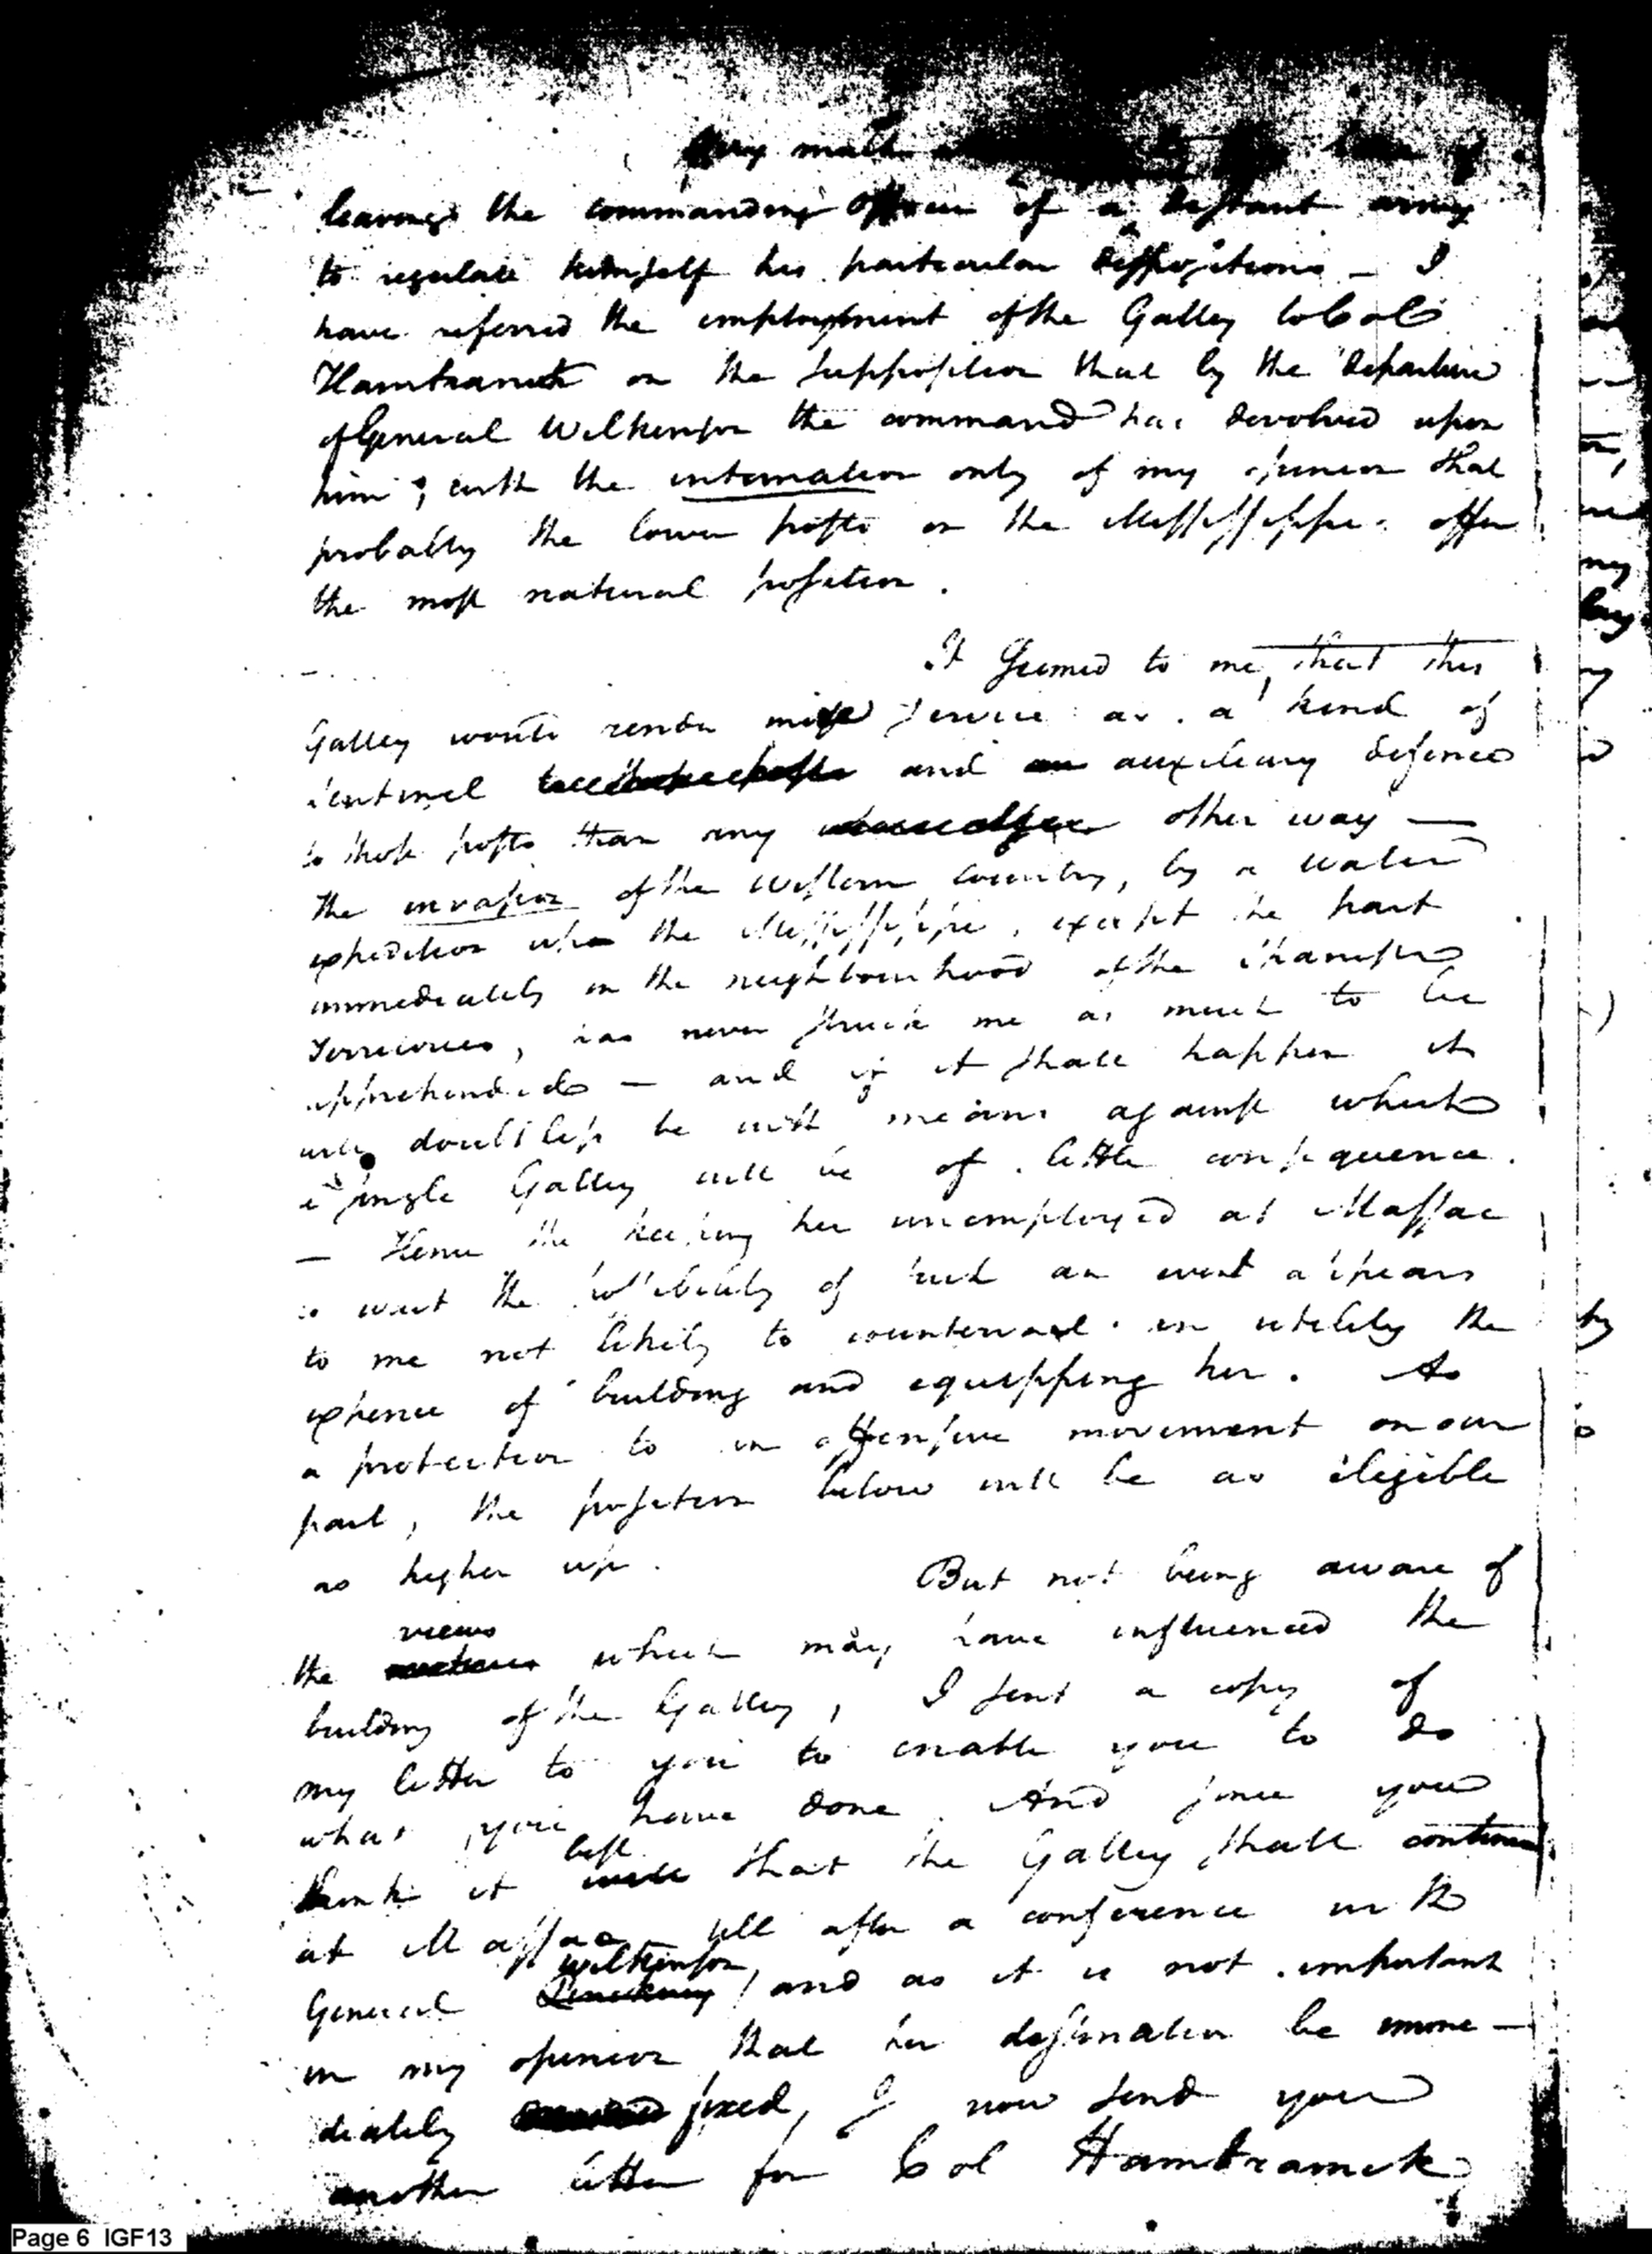 very much
leaving the commanding Officer of a distant army
to regulate himself his particular dispositions — I
have referred the employment of the Galley to Col
Hamtramck on the supposition that by the departure
of General Wilkinson the command has devolved upon
him; with the intimation only of my opinion that
probably the lower posts on the Mississippi offer
the most natural position.
It seemed to me, that this
Galley would render more service as a kind of
sentinel and an auxiliary defence
to those posts than any other way —
The invasion of the Western Country, by a water
expedition upon the Mississippi, except the part
immediately in the neighbourhood of the Spanish
Territories, has never struck me as much to be
apprehended — and if it shall happen it
will doubtless be with means against which
a single Galley will be of little consequence.
— Hence the keeping her unemployed at Massac
to wait the possibility of such an event appears
to me not likely to countervail in utility the
expence of building and equipping her. As
a protection to an offensive movement on our
part, the position below will be as eligible
as higher up. But not being aware of
views
the which may have influenced the
building of the Galley, I sent a copy of
my letter to you to enable you to do
what you have done. And since you
best
think it well that the Galley shall continue
at Massac till after a conference with
Wilkinson,
General Pinckney and as it is not important
in my opinion that her destination be imme-
diately fixed, I now send you
another letter for Col Hamtramck